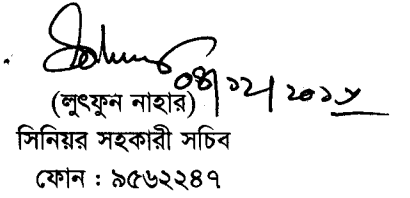 ০৪/১২/২০১৮
(লুৎফুন নাহার)
সিনিয়র সহকারী সচিব
ফোন : ৯৫৬২২৪৭